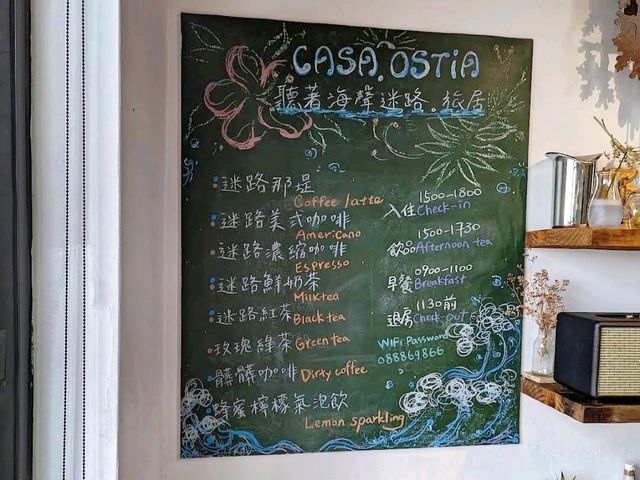 CASA.OSTIA
聽著海聲迷路.旅居
迷路那堤
Coffee latte
迷路美式咖啡
Americano
迷路濃缩咖啡
Espresso
迷路鮮奶茶
Milktea
迷路紅茶 Black tea
玫瑰綠茶 Green tea
髒髒咖啡 Dirty coffee
蜂蜜檸檬氣泡飲
Lemon sparkling
1500-1800
入住 Check-in
1500-1730
飲品 Afternoon tea
0900-1100
早餐 Breakfast
1130前
退房 Check-out
WiFi Password
088869866